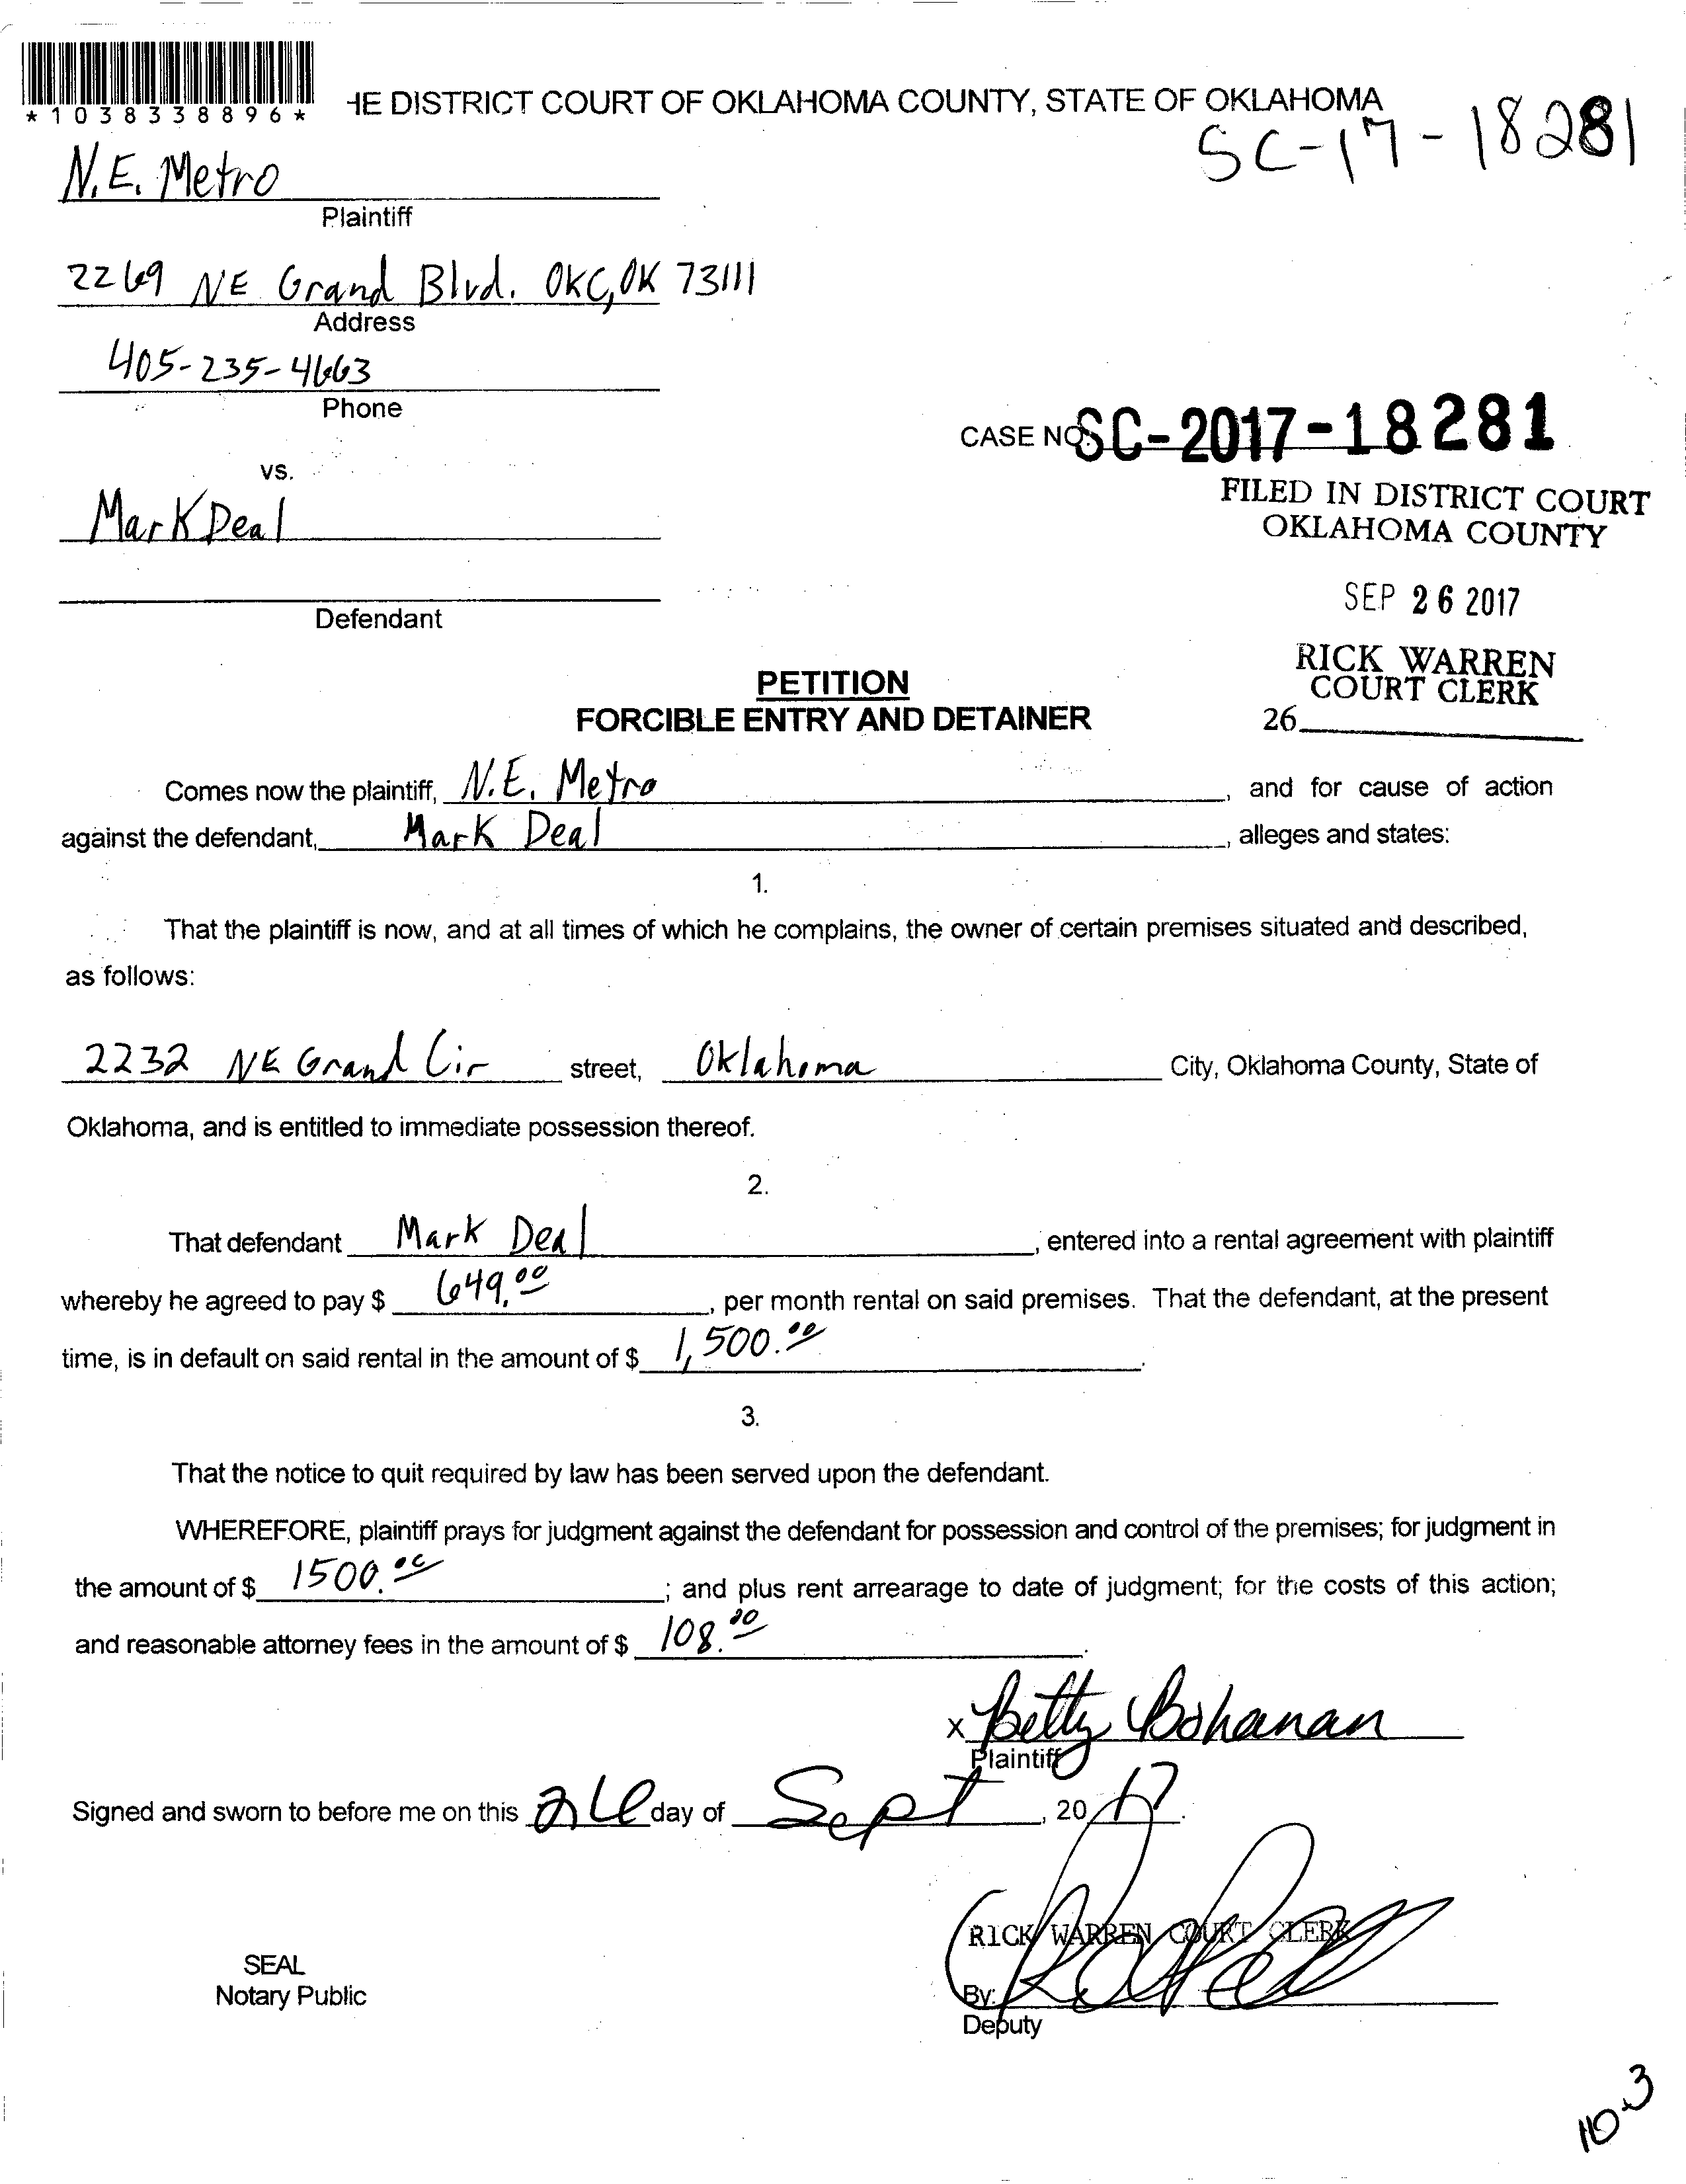 *1038338896*
HE DISTRICT COURT OF OKLAHOMA COUNTY, STATE OF OKLAHOMA
SC-17-18281
N.E. Metro
Plaintiff
2269 NE Grand Blvd. OKC, OK 73111
Address
405-235-4663
Phone
CASE NO. SC-2017-18281
vs.
FILED IN DISTRICT COURT
OKLAHOMA COUNTY
Mark Deal
SEP 26 2017
Defendant
RICK WARREN
COURT CLERK
26
PETITION
FORCIBLE ENTRY AND DETAINER
Comes now the plaintiff, N.E. Metro, and for cause of action
against the defendant, Mark Deal, alleges and states:
1.
That the plaintiff is now, and at all times of which he complains, the owner of certain premises situated and described,
as follows:
2232 NE Grand Cir street, Oklahoma City, Oklahoma County, State of
Oklahoma, and is entitled to immediate possession thereof.
2.
That defendant Mark Deal, entered into a rental agreement with plaintiff
whereby he agreed to pay $ 649.00, per month rental on said premises. That the defendant, at the present
time, is in default on said rental in the amount of $ 1,500.00.
3.
That the notice to quit required by law has been served upon the defendant.
WHEREFORE, plaintiff prays for judgment against the defendant for possession and control of the premises; for judgment in
the amount of $ 1500.00; and plus rent arrearage to date of judgment; for the costs of this action;
and reasonable attorney fees in the amount of $ 108.00.
x Betty Bohanan
Plaintiff
Signed and sworn to before me on this 26 day of Sept, 2017.
RICK WARREN COURT CLERK
SEAL
Notary Public
By:
Deputy
10-3